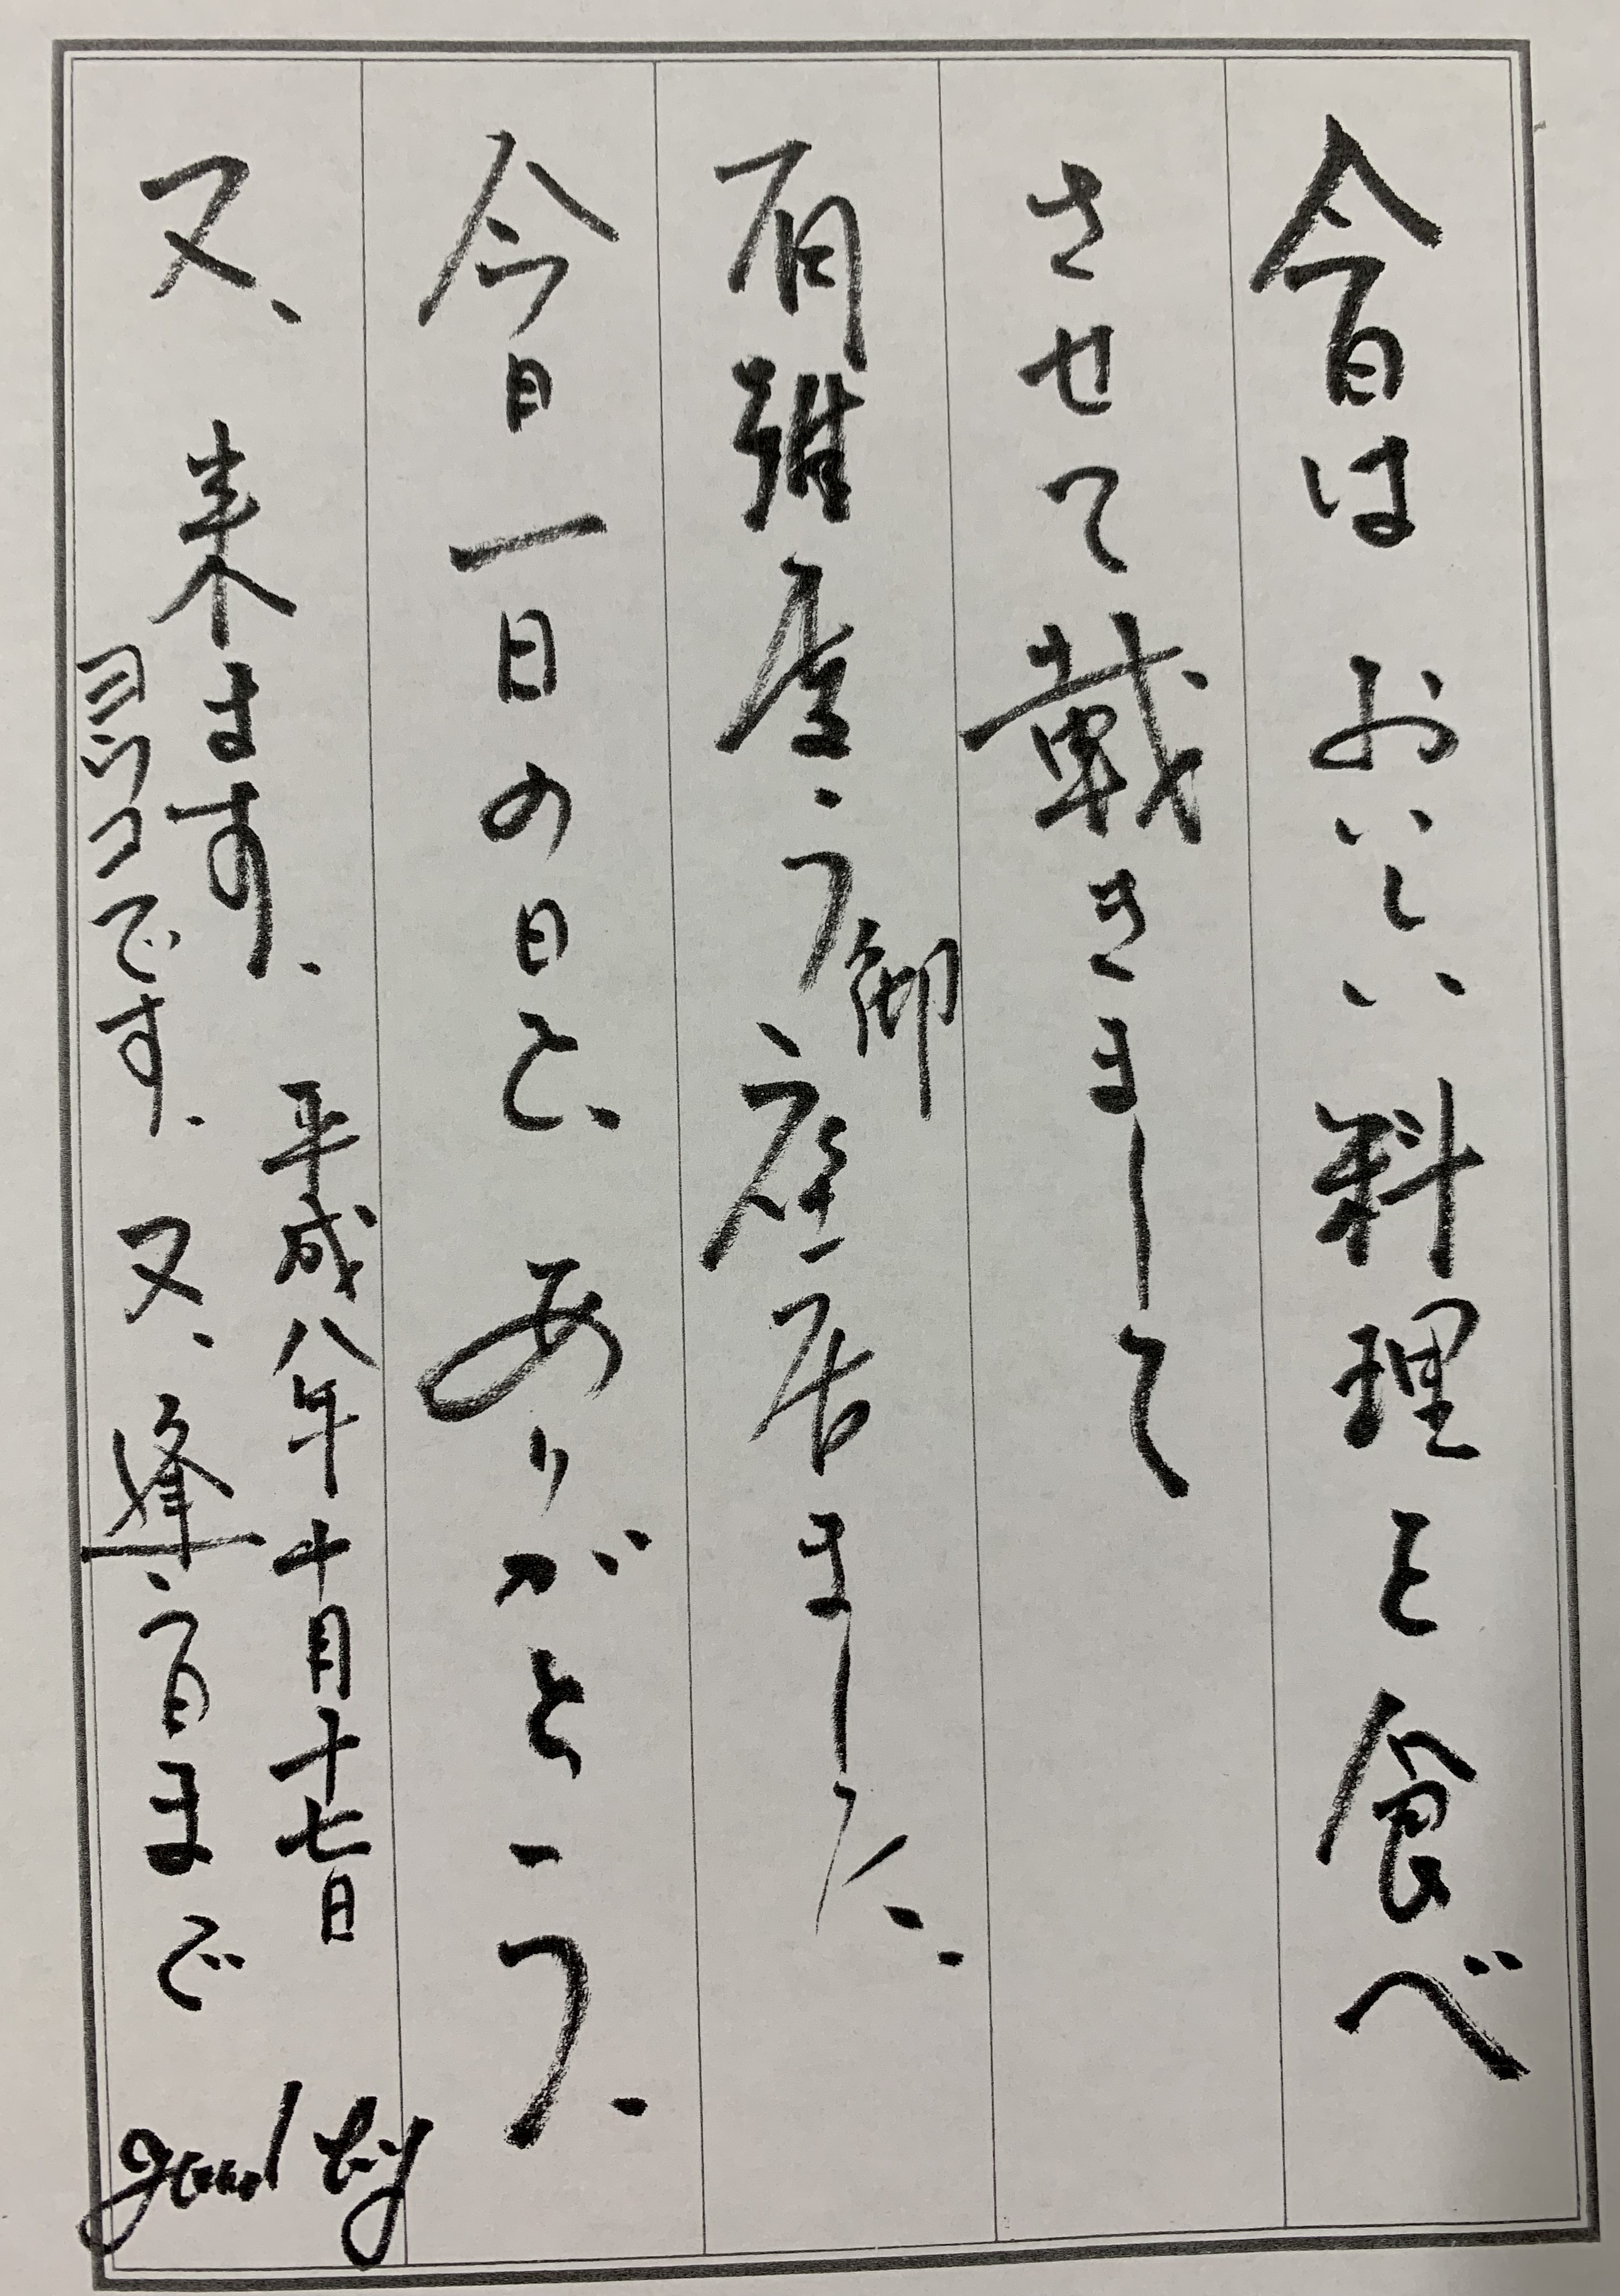 今日はおいしい料理を食べ
させて載きまして
有難度う御座居ました。
今日一日の日を、ありがとう、
又、来ます、
平成八年十月十七日
ヨッコです、又、逢う日まで
good by